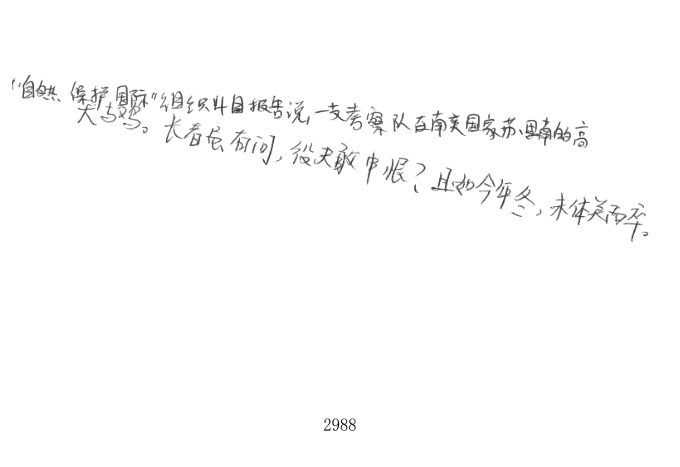 "自然保护国际"组织4日报告说,一支考察队在南美国家苏里南的高
犬与鸡。长者虽有问,役夫敢申恨?且如今年冬,未休关西卒。
2988